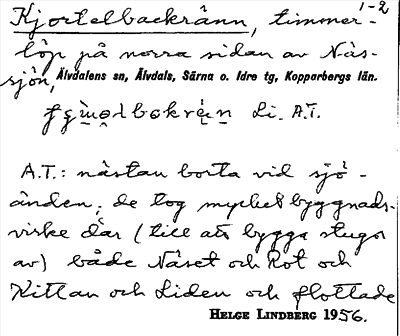 Kjortelbackränn, timmer- 1-2
löp på norra sidan av Näs-
sjön, Älvdalens sn, Älvdals, Särna o. Idre tg, Kopparbergs län.
Li. A.T.
A.T.: nästan borta vid sjö-
änden; de tog mycket byggnads-
virke där (till att bygga stugor
av) både Näset och Rot och
Kittan och Liden och flottade
HELGE LINDBERG 1956.